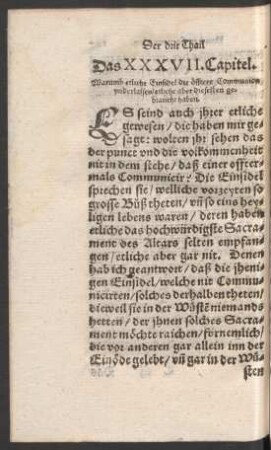 Der drit Thail
Das XXXVII. Capitel.
Warumb etliche Einsidel die öfftere Communion
vnderlassen/ etliche aber dieselben ge-
braucht haben.
ES seind auch jhrer etliche
gewesen / die haben mir ge-
sagt: wolten jhr sehen das
der punct vnd die volkommenheit
nit in dem stehe / daß einer offter-
mals Communicir? Die Einsidel
sprechen sie / welliche vorzeyten so
grosse Büß theten / vñ so eins hey-
ligen lebens waren / deren haben
etliche das hochwürdigste Sacra-
ment des Altars selten empfan-
gen / etliche aber gar nit. Denen
hab ich geantwort / daß die jheni-
gen Einsidel / welche nit Commu-
nicirten / solches derhalben theten /
dieweil sie in der Wüstē niemands
hetten / der jhnen solches Sacra-
ment möchte raichen / fürnemlich /
die vor anderen gar allein inn der
Einöde gelebt / vñ gar in der Wü-
sten